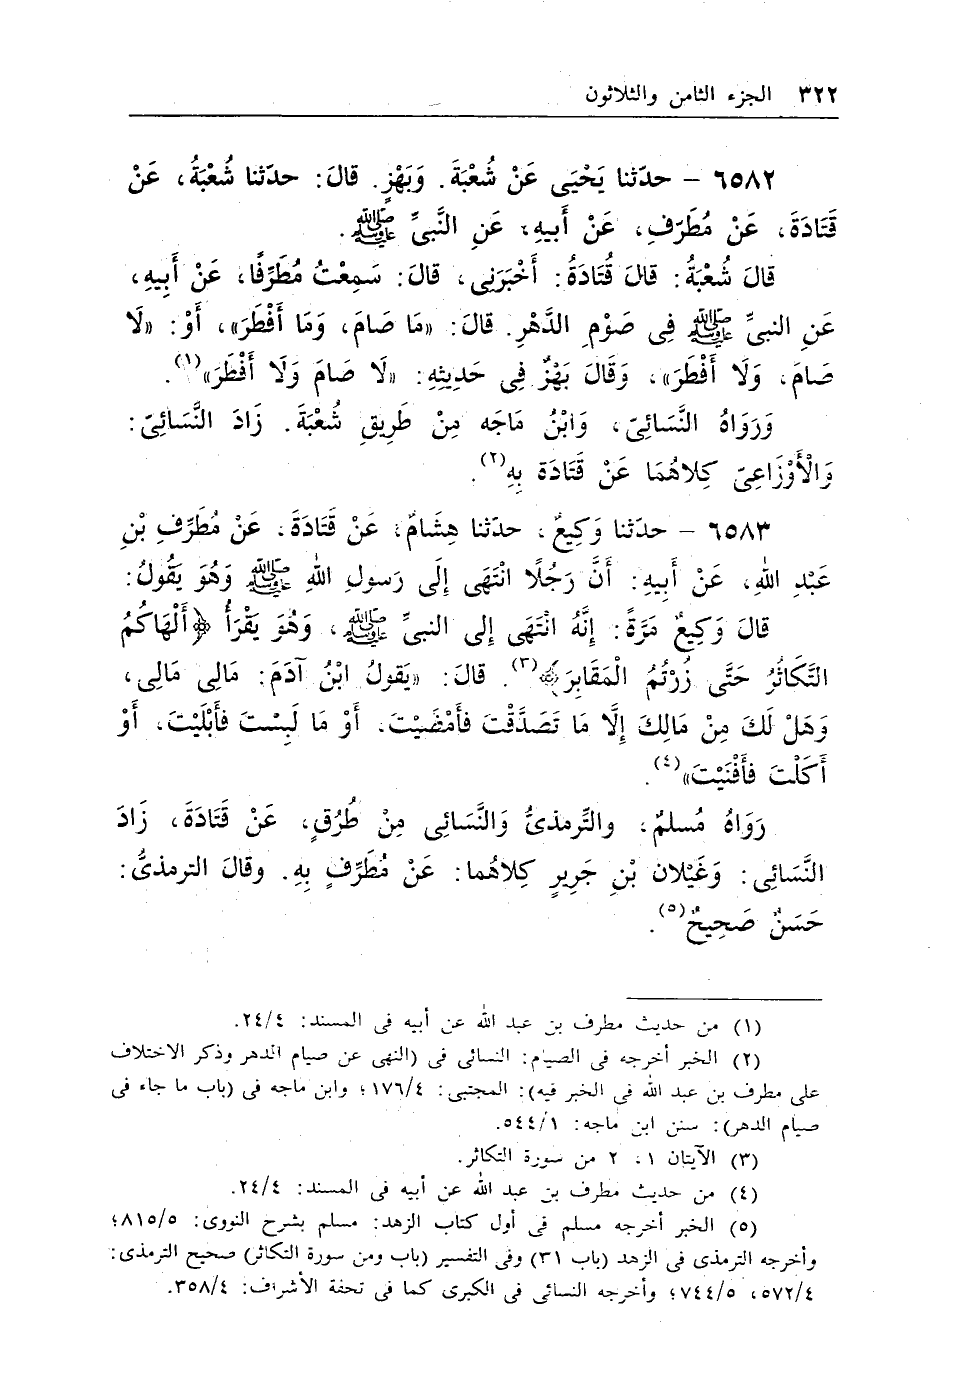 ٣٢٢ الجزء الثامن والثلاثون
٦٥٨٢ – حدّثنا يَحْيَى عَنْ شُعْبَةَ. وَبَهْزٍ. قالَ: حدّثنا شُعْبَةُ، عَنْ
قَتَادَةَ، عَنْ مُطَرِّفٍ، عَنْ أَبِيهِ، عَنِ النَّبِىِّ ﷺ.
قَالَ شُعْبَةُ: قالَ قُتَادَةُ: أَخْبَرَنِى، قالَ: سَمِعْتُ مُطَرِّفًا، عَنْ أَبِيهِ،
عَنِ النبىِّ ﷺ فِى صَوْمِ الدَّهْرِ. قَالَ: «مَا صَامَ، وَمَا أَفْطَرَ»، أَوْ: «لَا
صَامَ، وَلَا أَفْطَرَ»، وَقَالَ بَهْزٌ فِى حَدِيثِهِ: «لَا صَامَ وَلَا أَفْطَرَ»(١).
وَرَوَاهُ النَّسَائِىّ، وَابْنُ مَاجَه مِنْ طَرِيقِ شُعْبَةَ. زَادَ النَّسَائِىّ:
وَالْأَوْزَاعِىّ كِلاهُمَا عَنْ قَتَادَة بِهِ(٢).
٦٥٨٣ – حدّثنا وَكِيعٌ، حدّثنا هِشَامٌ، عَنْ قَتَادَةَ، عَنْ مُطَرِّفِ بْنِ
عَبْدِ اللهِ، عَنْ أَبِيهِ: أَنَّ رَجُلًا انْتَهَى إِلَى رَسولِ اللهِ ﷺ وَهُوَ يَقُولُ:
قَالَ وَكِيعٌ مَرَّةً: إِنَّهُ انْتَهَى إِلى النبىِّ ﷺ، وَهُوَ يَقْرَأُ ﴿أَلْهَاكُمُ
التَّكَاثُرُ حَتَّى زُرْتُمُ الْمَقَابِرَ﴾(٣). قَالَ: «يَقولُ ابْنُ آدَمَ: مَالِى مَالِى،
وَهَلْ لَكَ مِنْ مَالِكَ إِلَّا مَا تَصَدَّقْتَ فَأَمْضَيْتَ، أَوْ مَا لَبِسْتَ فَأَبْلَيْتَ، أَوْ
أَكَلْتَ فَأَفْنَيْتَ»(٤).
رَوَاهُ مُسلمٌ، والتِّرمذىُّ وَالنَّسَائِى مِنْ طُرُقٍ، عَنْ قَتَادَةَ، زَادَ
النَّسَائِى: وَغَيْلان بْنِ جَرِيرٍ كِلاهُما: عَنْ مُطَرِّفٍ بِهِ. وقالَ الترمذىُّ:
حَسَنٌ صَحِيحٌ(٥).
(١) من حديث مطرف بن عبد الله عن أبيه فى المسند: ٢٤/٤.
(٢) الخبر أخرجه فى الصيام: النسائى فى (النهى عن صيام الدهر وذكر الاختلاف
على مطرف بن عبد الله فى الخبر فيه): المجتبى: ١٧٦/٤؛ وابن ماجه فى (باب ما جاء فى
صيام الدهر): سنن ابن ماجه: ٥٤٤/١.
(٣) الآيتان ١، ٢ من سورة التكاثر.
(٤) من حديث مطرف بن عبد الله عن أبيه فى المسند: ٢٤/٤.
(٥) الخبر أخرجه مسلم فى أول كتاب الزهد: مسلم بشرح النووى: ٨١٥/٥؛
وأخرجه الترمذى فى الزهد (باب ٣١) وفى التفسير (باب ومن سورة التكاثر) صحيح الترمذى:
٥٧٢/٤، ٧٤٤/٥؛ وأخرجه النسائى فى الكبرى كما فى تحفة الأشراف: ٣٥٨/٤.